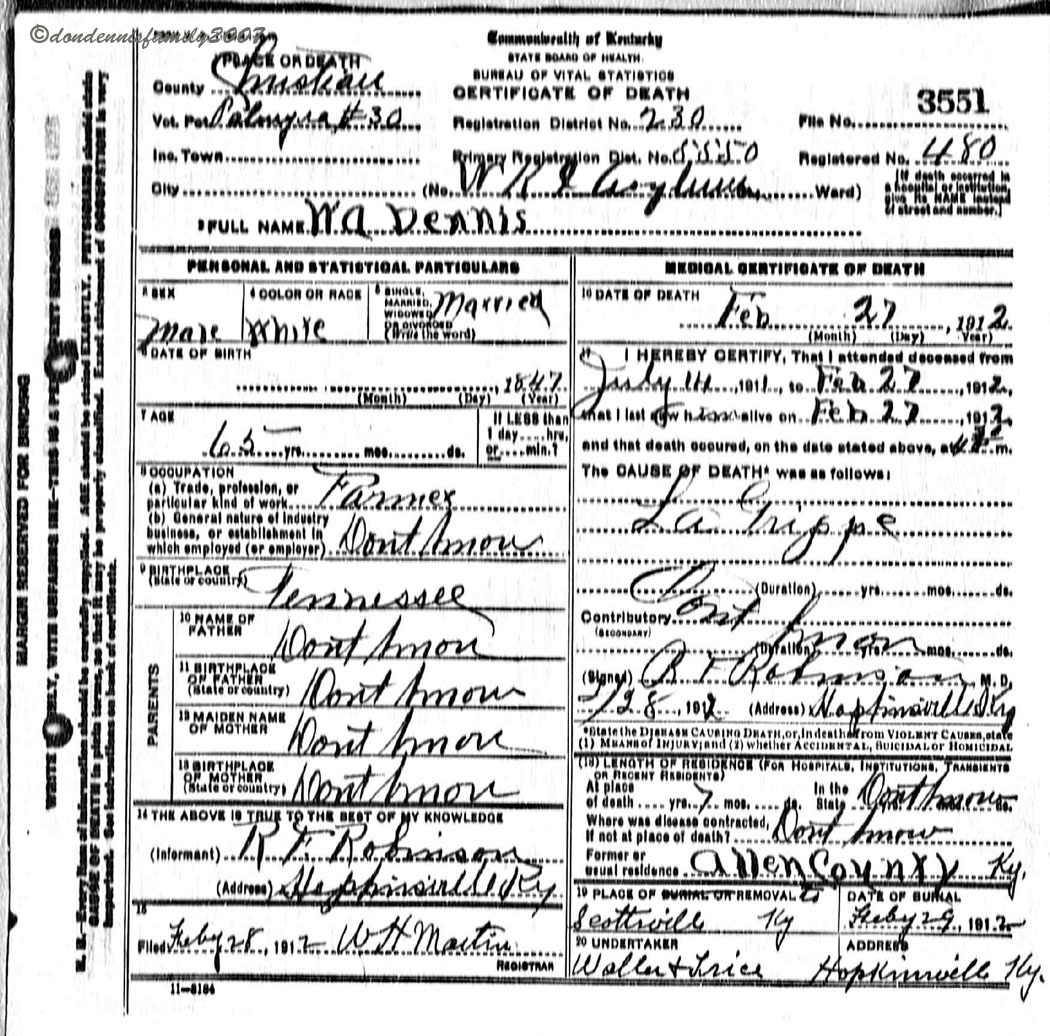 ©dondennisfamily3003
Commonwealth of Kentucky
STATE BOARD OF HEALTH
BUREAU OF VITAL STATISTICS
CERTIFICATE OF DEATH
PLACE OF DEATH
County Christian
Vot. Pct Palmyra #30
Registration District No. 230
File No. 3551
Inc. Town
Primary Registration Dist. No. 5550
Registered No. 480
City (No. W K I Asylum Ward)
[If death occurred in a hospital or institution, give its NAME instead of street and number.]
2 FULL NAME WA Dennis
PERSONAL AND STATISTICAL PARTICULARS
3 SEX Male
4 COLOR OR RACE White
5 SINGLE, MARRIED, WIDOWED OR DIVORCED (Write the word) Married
6 DATE OF BIRTH
, 1847
(Month) (Day) (Year)
7 AGE
65 yrs. mos. ds.
If LESS than 1 day hrs, or min.?
8 OCCUPATION
(a) Trade, profession, or particular kind of work Farmer
(b) General nature of industry
business, or establishment in
which employed (or employer) Dont know
9 BIRTHPLACE
(State or country) Tennessee
PARENTS
10 NAME OF FATHER Dont know
11 BIRTHPLACE OF FATHER (State or country) Dont know
12 MAIDEN NAME OF MOTHER Dont know
13 BIRTHPLACE OF MOTHER (State or country) Dont know
14 THE ABOVE IS TRUE TO THE BEST OF MY KNOWLEDGE
(Informant) R F Robinson
(Address) Hopkinsville Ky
15
Filed Feby 28, 1912 W H Martin
REGISTRAR
11-3184
MEDICAL CERTIFICATE OF DEATH
16 DATE OF DEATH
Feb 27, 1912
(Month) (Day) (Year)
17 I HEREBY CERTIFY, That I attended deceased from
July 14 1911, to Feb 27, 1912,
that I last saw him alive on Feb 27, 1912,
and that death occured, on the date stated above, at m.
The CAUSE OF DEATH* was as follows:
La Grippe
(Duration) yrs. mos. ds.
Contributory Dont know
(SECONDARY)
(Duration) yrs. mos. ds.
(Signed) R F Robinson M.D.
2/28, 1912 (Address) Hopkinsville Ky
*State the DISEASE CAUSING DEATH, or, in deaths from VIOLENT CAUSES, state
(1) MEANS OF INJURY; and (2) whether ACCIDENTAL, SUICIDAL OR HOMICIDAL
(18) LENGTH OF RESIDENCE (FOR HOSPITALS, INSTITUTIONS, TRANSIENTS
OR RECENT RESIDENTS)
At place of death yrs. 7 mos. ds. In the State Dont know ds.
Where was disease contracted,
If not at place of death? Dont know
Former or usual residence Allen County Ky.
19 PLACE OF BURIAL OR REMOVAL to
Scottsville Ky
DATE OF BURIAL
Feby 29, 1912
20 UNDERTAKER
Waller & Trice
ADDRESS
Hopkinsville Ky.
MARGIN RESERVED FOR BINDING
N. B.—Every item of information should be carefully supplied. AGE should be stated EXACTLY. PHYSICIANS should state
CAUSE OF DEATH in plain terms, so that it may be properly classified. Exact statement of OCCUPATION is very
important. See instructions on back of certificate.